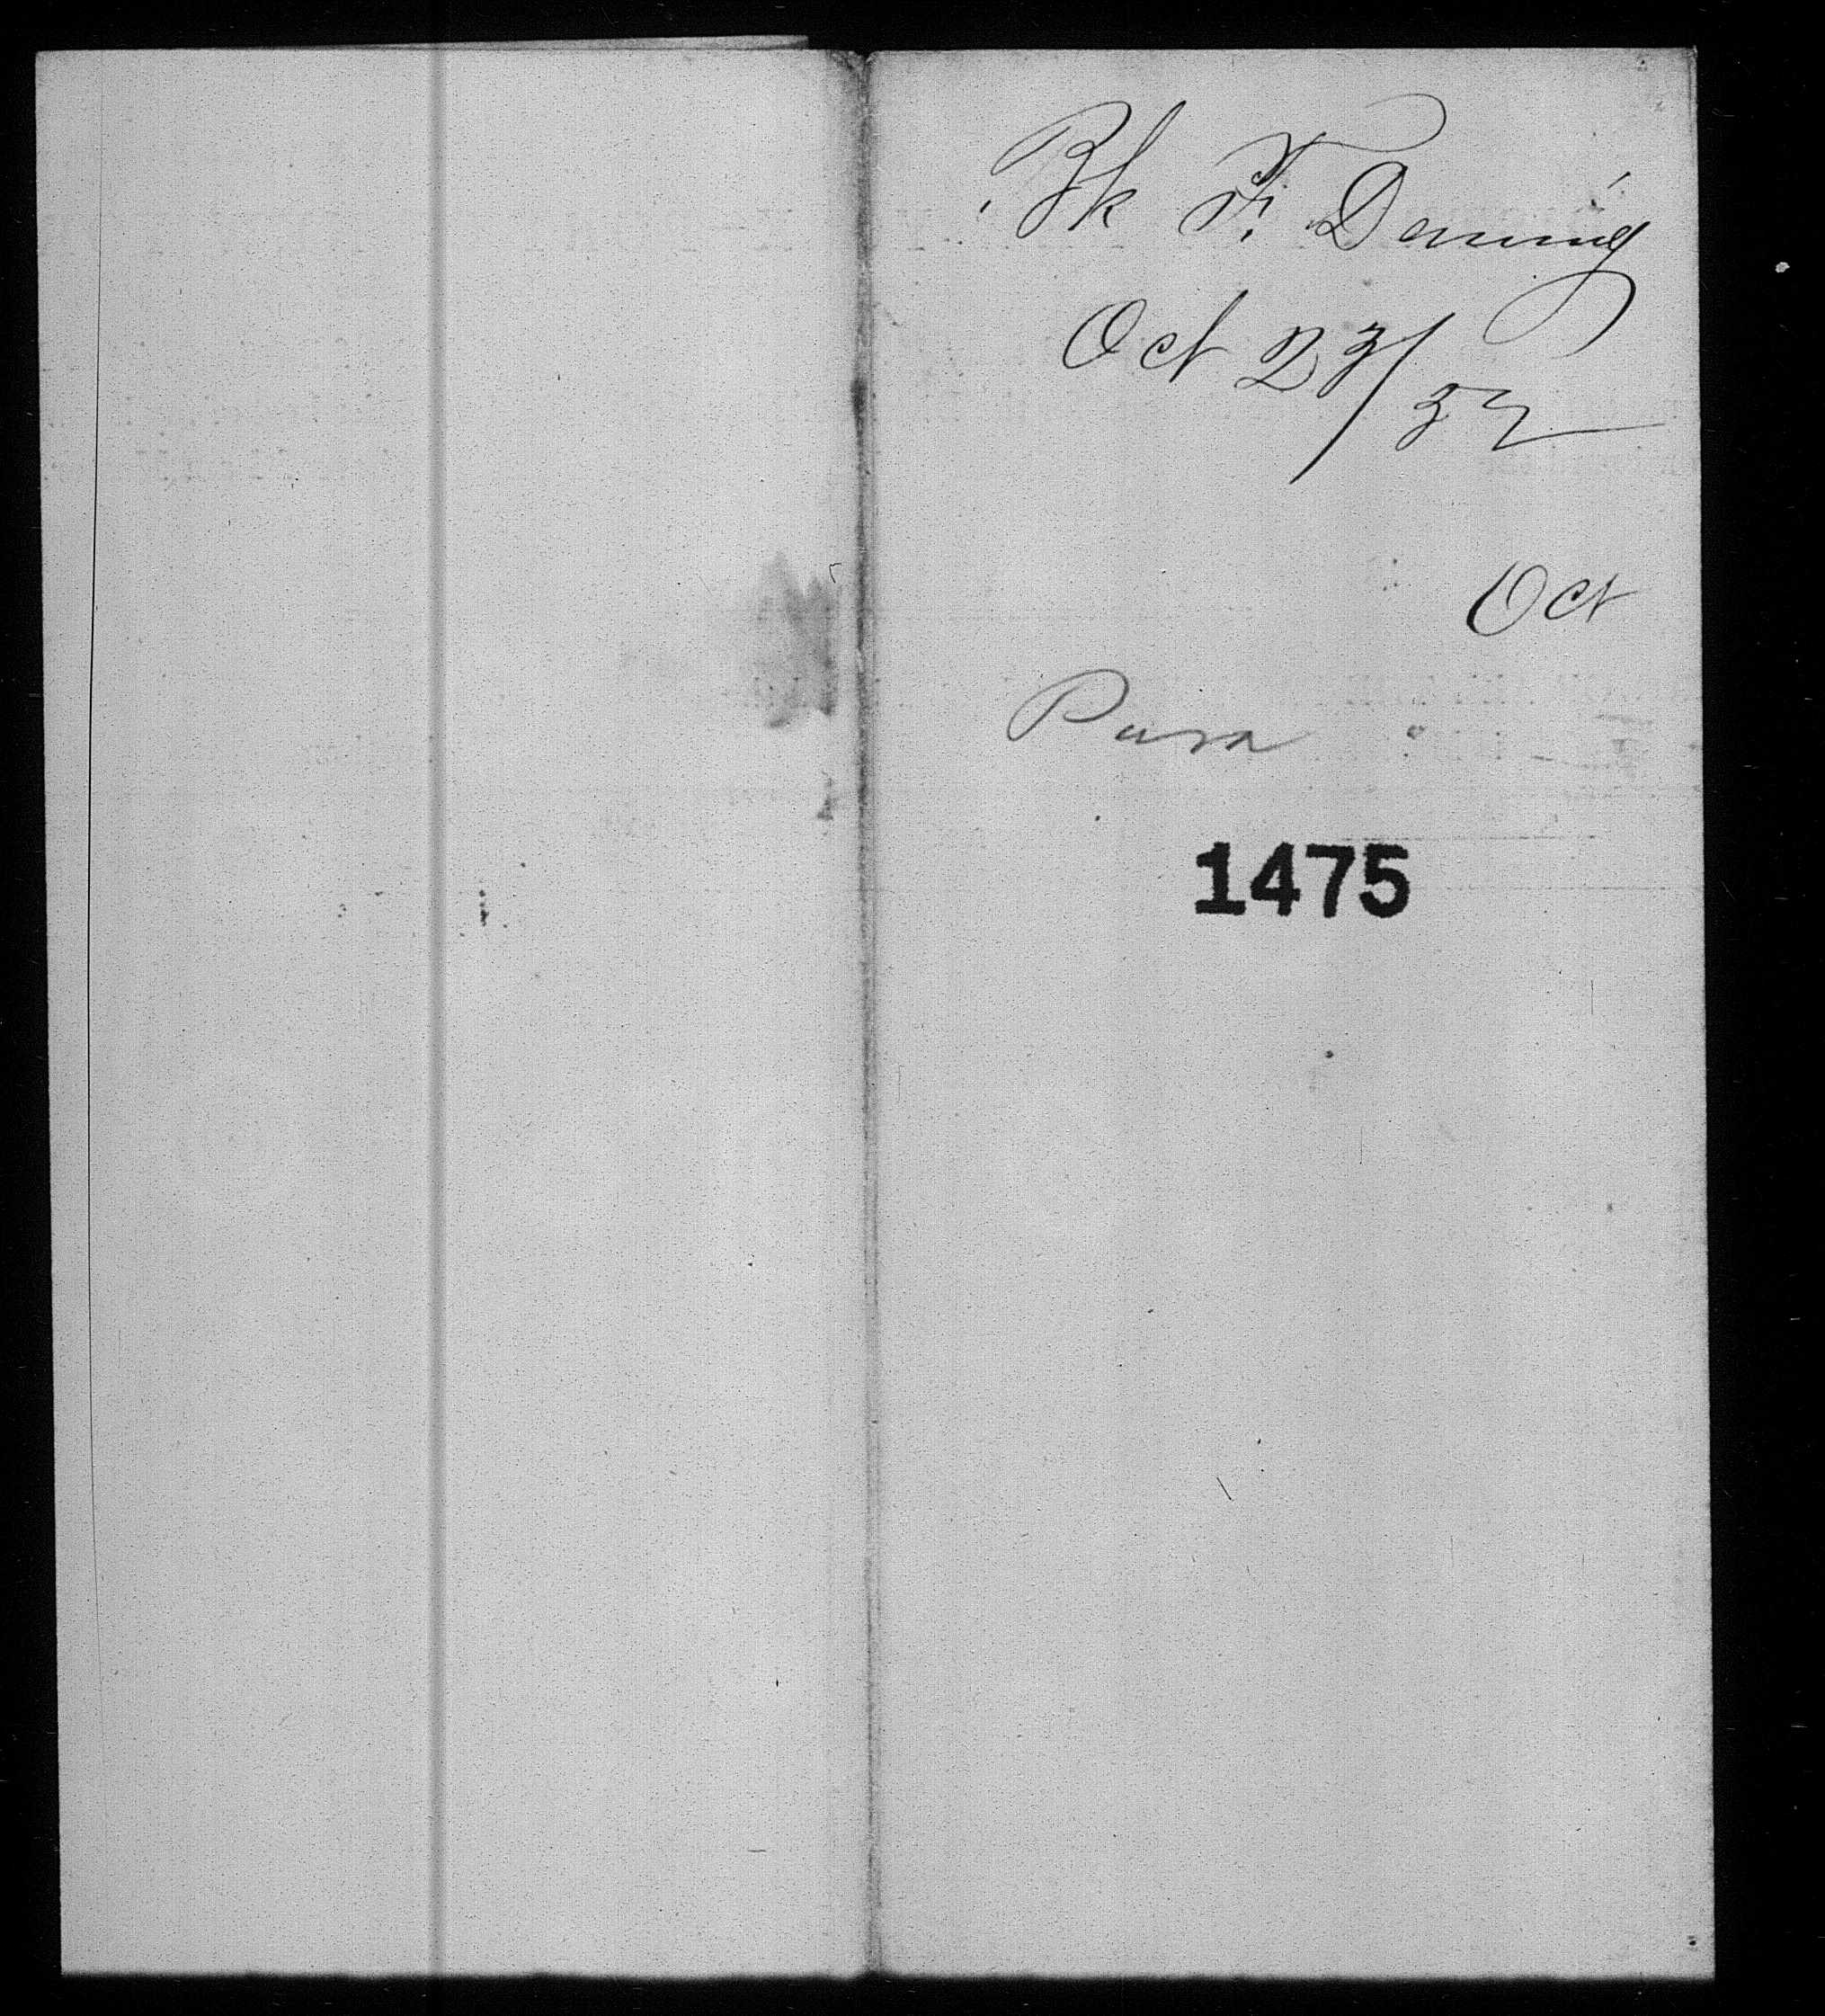 Bk F. Deming
Oct 23/52
Oct
Para
1475